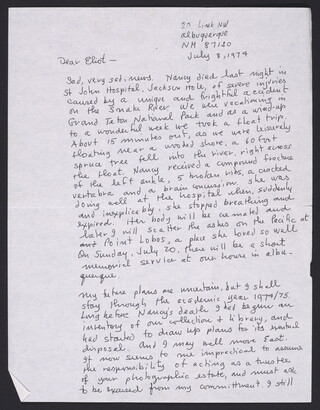 Link NW
Albuquerque
NM 87120
July 8, 1974
Dear Eliot —
Sad, very sad, news. Nancy died last night in
St John Hospital, Jackson Hole, of severe injuries
caused by a unique and frightful accident
on the Snake River. We were vacationing in
Grand Teton National Park and as a wind-up
to a wonderful week we took a float trip.
About 15 minutes out, as we were leisurely
floating near a wooded shore, a 60 foot
spruce tree fell into the river, right across
the float. Nancy received a compound fracture
of the left ankle, 5 broken ribs, a cracked
vertebra and a brain concussion. She was
doing well at the hospital when, suddenly
and inexplicably, she stopped breathing and
expired. Her body will be cremated and
later I will scatter the ashes on the Pacific at
Point Lobos, a place she loved so well
On Sunday, July 20, there will be a short
memorial service at our house in Albu-
querque.
My future plans are uncertain, but I shall
stay through the academic year 1974/75.
Long before Nancy's death I had begun an
inventory of our collection & library, and
had started to draw up plans for its eventual
disposal. And I may well move East.
It now seems to me impractical to assume
the responsibility of acting as a trustee
of your photographic estate, and must ask
to be excused from my committment. I still